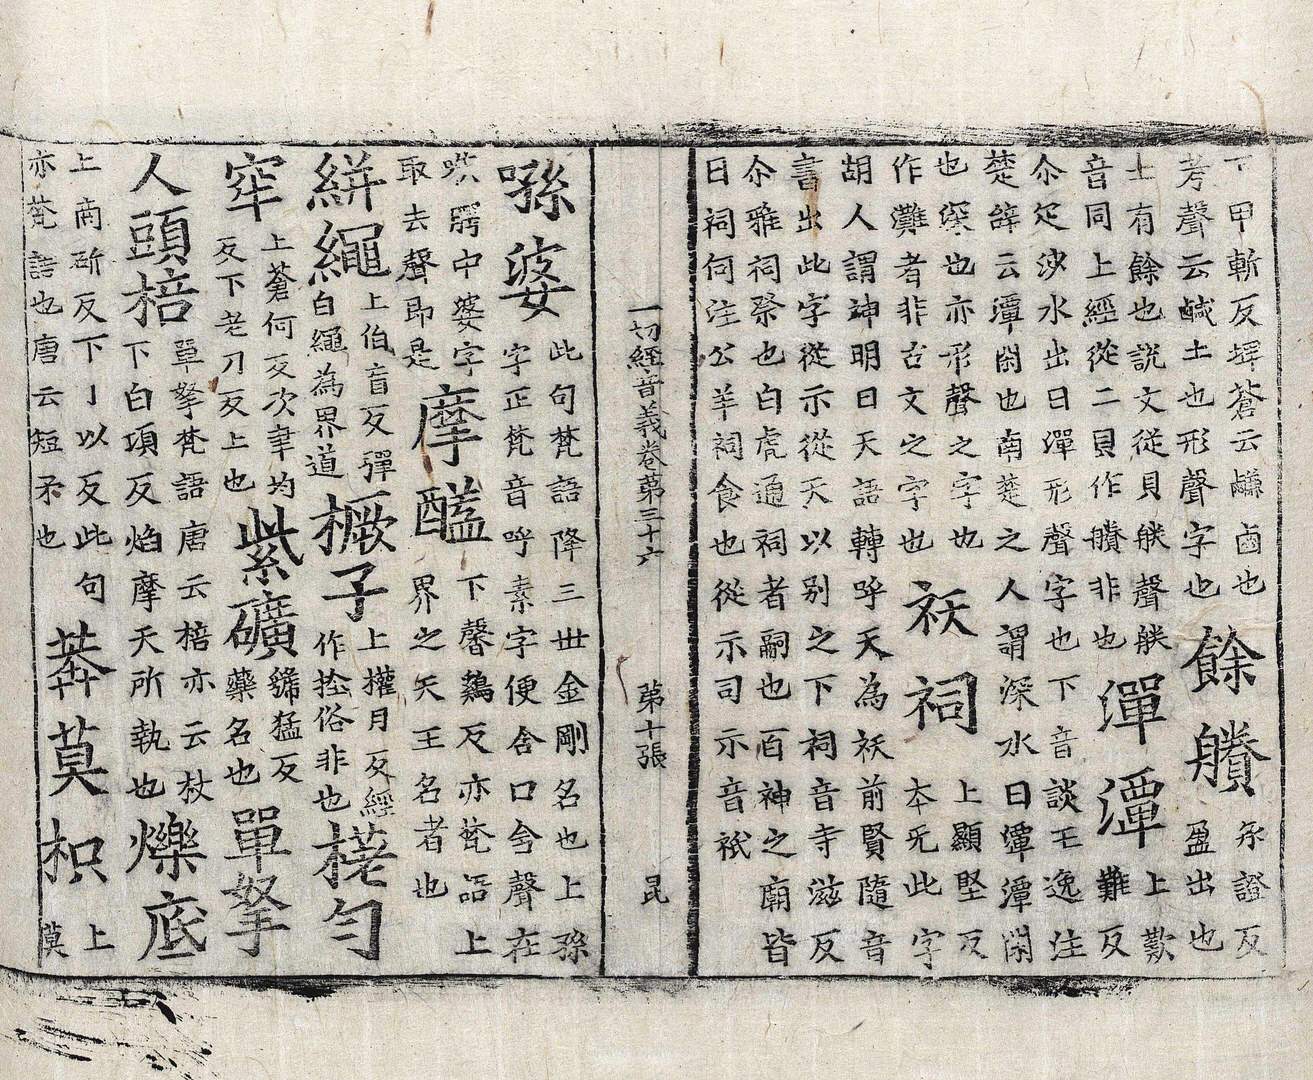 下甲斬反墿蒼云鹻鹵也
考聲云鹹土也形聲字也
餘賸
承證反
盈出也
士有餘也説文從貝朕聲朕
音同上經從二貝作賸非也
潬潭
上歎
難反
尒疋沙水出曰潬形聲字也下音談王逸注
楚辞云潭閑也南楚之人謂深水曰潭潭閑
也深也亦形聲之字也
作灘者非古文之字也
祆祠
上顯堅反
本无此字
胡人謂神明曰天語轉呼天為祆前賢隨音
書出此字從示從天以别之下祠音寺滋反
尒雅祠祭也白虎通祠者嗣也百神之廟皆
曰祠何注公羊祠食也從示司示音祇
一切經音義卷第三十六 第十張 昆
㖔婆
此句梵語降三世金剛名也上孫
字正梵音呼素字便含口含聲在
㗢腭中婆字
取去聲即是
摩醯
下馨鷄反亦梵語上
界之天王名者也
絣繩
上伯盲反彈
白繩為界道
橛子
上權月反經
作㧾俗非也
栳匀
窂
上蒼何反次聿均
反下老刀反上也
紫礦
鑛猛反
藥名也
單拏
人頭棓
單拏梵語唐云棓亦云杖
下白項反焰摩天所執也
爍底
上商斫反下丁以反此句
亦梵語也唐云短矛也
莽莫枳
上
莫